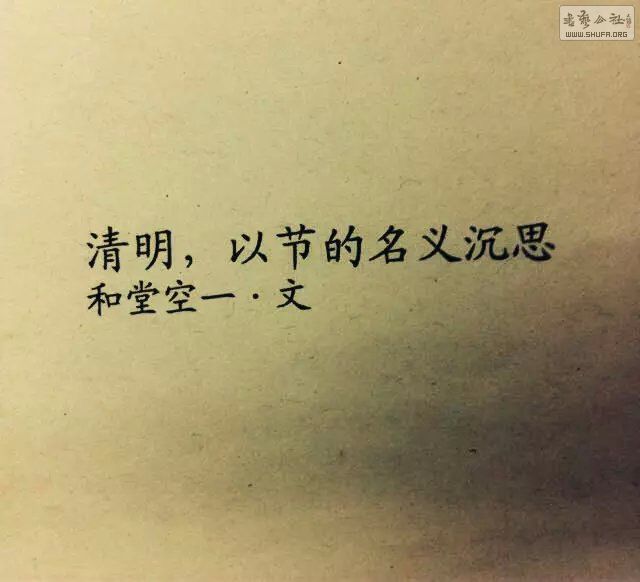 书艺公社
WWW.SHUFA.ORG
清明，以节的名义沉思
和堂空一·文